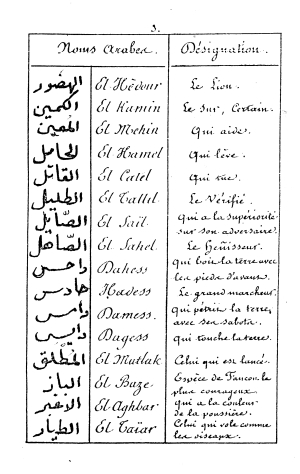 3.
Noms Arabes. Désignation.
الهصور El Hédour Le Lion.
الكمين El Kamin Le sur, Certain.
المعين El Mehin Qui aide.
الحامل El Hamel Qui lève.
القاتل El Catel Qui tue.
El Tallil Le Vérifié
الصايل El Saïl Qui a la supériorité
sur son adversaire.
الصاهل El Sahel Le Hennisseur.
داحس Dahess Qui bou la terre avec
les pieds d'avant.
حادس Hadess Le grand marcheur.
دامس Damess. Qui pétrit la terre,
avec ses sabots.
Dagess Qui touche la terre.
المطلق El Mutlak Celui qui est lancé.
الباز El Baze Espèce de Faucon le
plus courageux.
الاغبر El Aghbar qui a la couleur
de la poussière.
الطيار El Taïar Celui qui vole comme
les oiseaux.